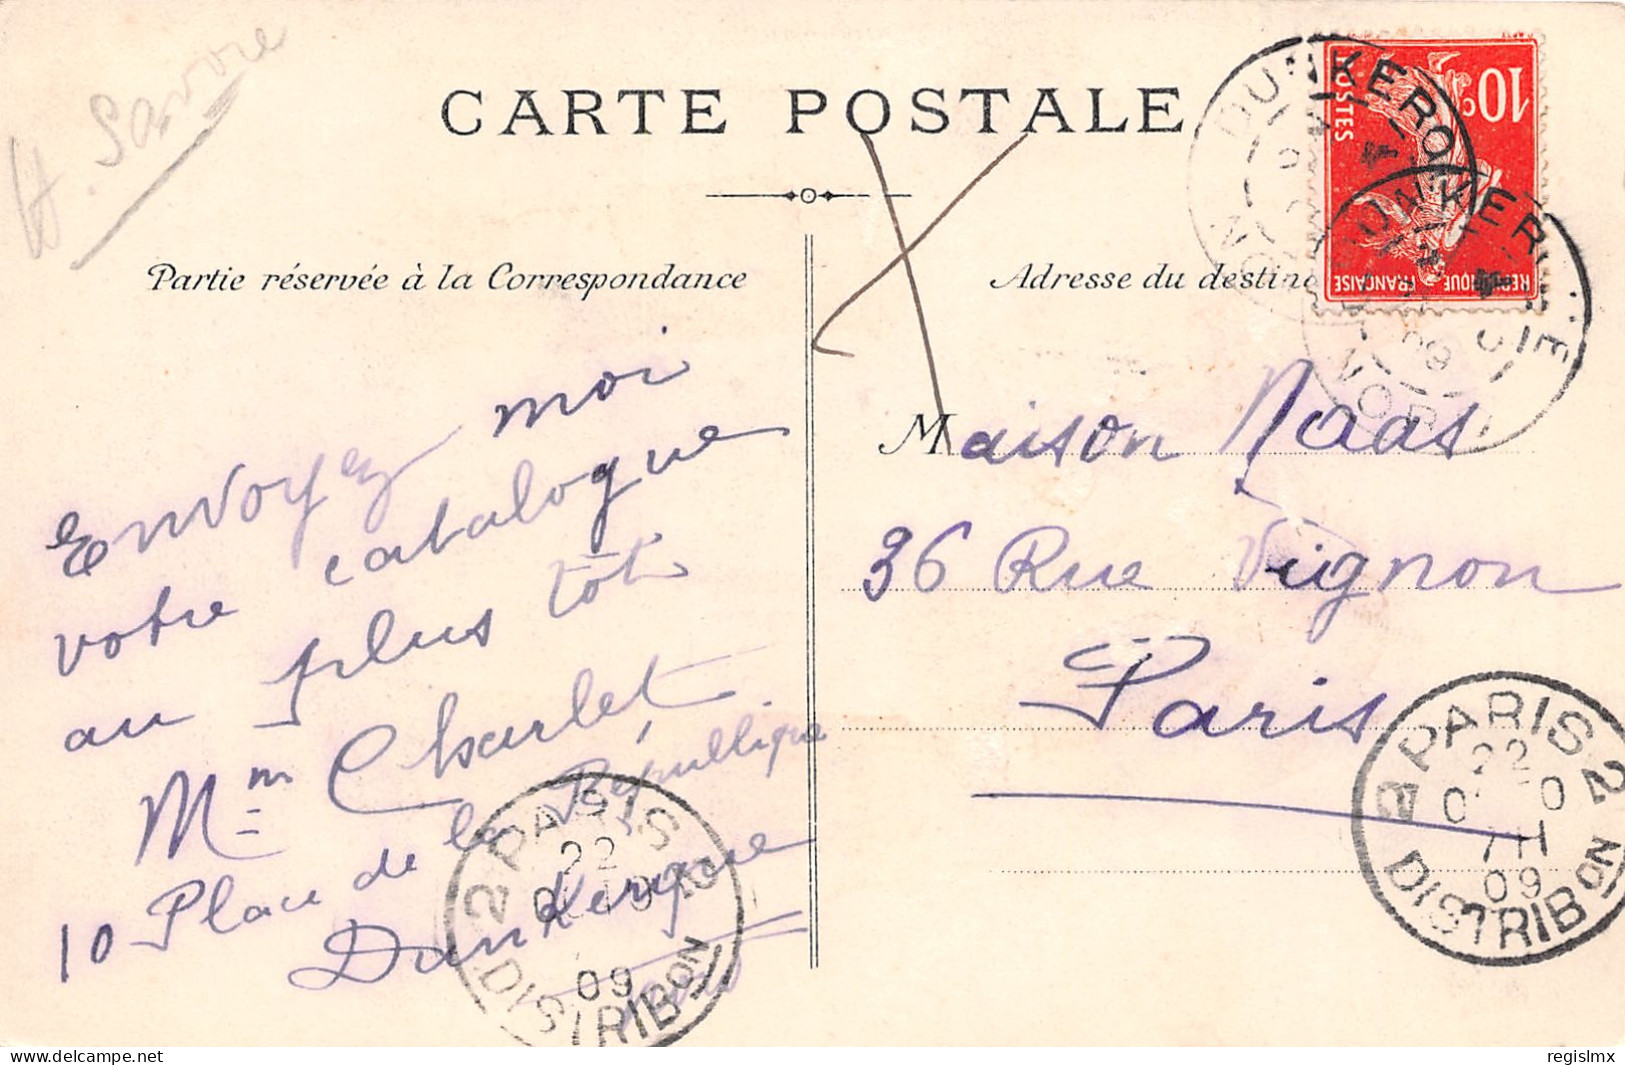 H. Savoie
CARTE POSTALE
Partie réservée à la Correspondance
Adresse du destin
Envoyez moi
votre catalogue
au plus tôt
Mme Charlet
10 Place de la République
Dunkerque
Nord
Maison Naas
36 Rue Vignon
Paris
10c
POSTES
REPUBLIQUE FRANÇAISE
DUNKERQUE
NORD
DUNKERQUE
NORD
09
2 PARIS 2
22
09
DISTRIBON
2 PARIS 2
22
7H
09
DISTRIBON
regislmx